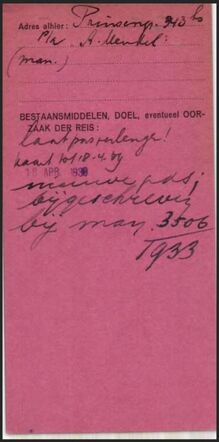 Adres alhier: Prinsengr. 943 hs
p/a A. Mendel
(man.)
BESTAANSMIDDELEN, DOEL, eventueel OOR-
ZAAK DER REIS:
laat pas verlengen!
kaart tot 18.4.39
18 APR 1938
nieuwe ads;
bijgeschreven
bij man. 3506
/1933